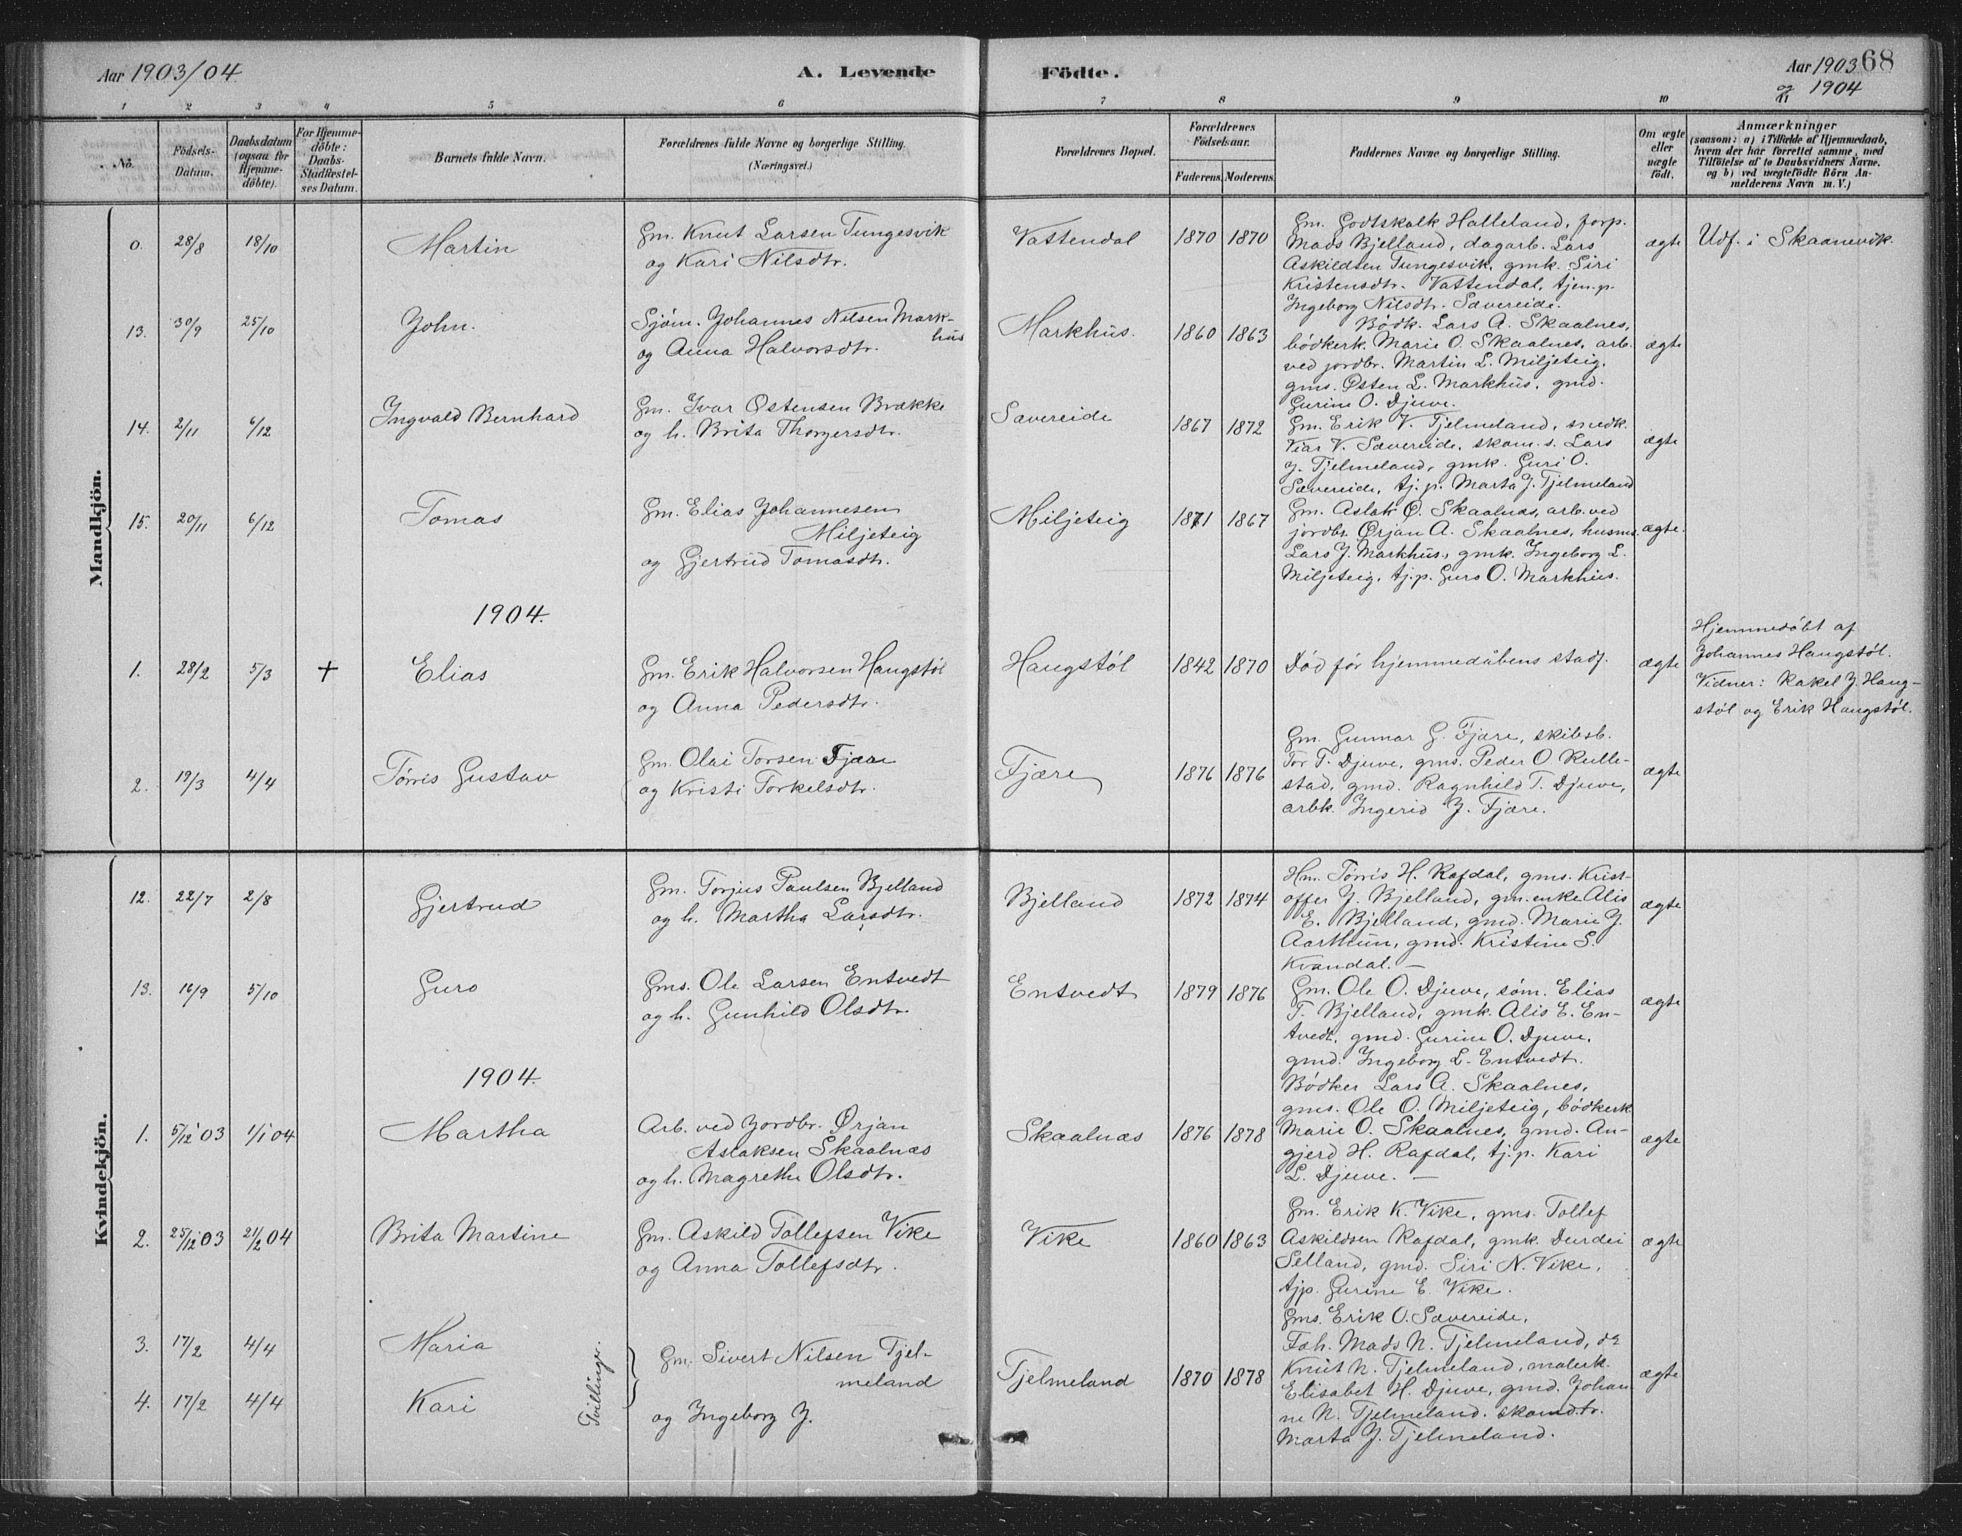 Aar 1903/04
A. Levende
Födte.
Aar 1903 68
og 1904
1 2 3 4 5 6 7 8 9 10 11
No.
Födsels-
Datum.
Daabsdatum
(ogsaa for
Hjemme-
döbte).
For Hjemme-
döbte:
Daabs-
Stadfæstel-
ses Datum.
Barnets fulde Navn.
Forældrenes fulde Navne og borgerlige Stilling.
(Næringsvei.)
Forældrenes Bopæl.
Forældrenes
Födselsaar.
Faderens. Moderens.
Faddernes Navne og borgerlige Stilling.
Om ægte
eller
uægte
födt.
Anmærkninger
(saasom: a) i Tilfælde af Hjemmedaab,
hvem der har forrettet samme, med
Tilföielse af to Daabsvidners Navne.
og b) ved uægtefödte Börn An-
melderens Navn m. V.)
Mandkjön.
0. 28/8 18/10 Martin
Gm. Knut Larsen Tungesvik
og Kari Nilsdtr.
Vattendal 1870 1870
Gm. Godtskalk Halleland, forp.
Mads Bjelland, dagarb. Lars
Askildsen Tungesvik, gmk. Siri
Kristensdtr. Vattendal, tjen.p.
Ingeborg Nilsdtr. Sævereide.
ægte Udf. i Skaanevik.
13. 30/9 25/10 John.
Sjøm. Johannes Nilsen Mark-
hus
og Anna Halvorsdtr.
Markhus. 1860 1863
Bødk. Lars A. Skaalnes,
bødkerk. Marie O. Skaalnes, arb.
ved jordbr. Martin L. Miljeteig,
gms. Østen L. Markhus, gmd.
Gurine O. Djuve.
ægte
14. 2/11 6/12 Ingvald Bernhard
Gm. Ivar Østensen Brække
og h. Brita Thorgersdtr.
Sævereide 1867 1872
Gm. Erik V. Tjelmeland, snedk.
Viar V. Sævereide, skom. s. Lars
J. Tjelmeland, gmk. Guri O.
Sævereide, tj.p. Marta J. Tjelmeland
ægte
15. 20/11 6/12 Tomas
Gm. Elias Johannesen
Miljeteig
og Gjertrud Tomasdtr.
Miljeteig 1871 1867
Gm. Aslak Ø. Skaalnæs, arb. ved
jordbr. Ørjan A. Skaalnes, husm.
Lars J. Markhus, gmk. Ingeborg L.
Miljeteig, tj.p. Guro O. Markhus.
ægte.
1904.
1. 28/2 5/3 + Elias
Gm. Erik Halvorsen Haugstøl
og Anna Pedersdtr.
Haugstøl 1842 1870
Død før hjemmedåbens stadf.
ægte
Hjemmedøbt af
Johannes Haugstøl.
Vidner: Rakel J. Haug-
støl og Erik Haugstøl.
2. 19/3 4/4 Tørris Gustav
Gm. Olai Torsen Fjære
og Kristi Torkelsdtr.
Fjære 1876 1876
Gm. Gunnar G. Fjære, skibsb.
Tor T. Djuve, gms. Peder O. Rulle-
stad, gmd. Ragnhild T. Djuve,
arbk. Ingerid J. Fjære.
ægte
Kvindekjön.
12. 22/7 2/8 Gjertrud
Gm. Torjus Paulsen Bjelland
og h. Martha Larsdtr.
Bjelland 1872 1874
Hm. Tørris H. Rafdal, gms. Krist-
offer J. Bjelland, gm. enke Alis
E. Bjelland, gmd. Marie J.
Aarthun, gmd. Kristine S.
Kvandal. —
ægte
13. 16/9 5/10 Guro
Gms. Ole Larsen Entvedt
og h. Gunhild Olsdtr.
Entvedt 1879 1876
Gm. Ole O. Djuve, søm. Elias
T. Bjelland, gmk. Alis E. En-
tvedt, gmd. Gurine O. Djuve,
gmd. Ingeborg L. Entvedt.
ægte
1904.
1. 5/12 03 1/1 04 Martha
Arb. ved Jordbr. Ørjan
Aslaksen Skaalnæs
og h. Magrethe Olsdtr.
Skaalnæs 1876 1878
Bødker Lars A. Skaalnes,
gms. Ole O. Miljeteig, bødkerk
Marie O. Skaalnes, gmd. An-
gjerd H. Rafdal, tj.p. Kari
L. Djuve. —
ægte
2. 25/12 03 21/2 04 Brita Martine
Gm. Askild Tollefsen Vike
og Anna Tollefsdtr.
Vike 1860 1863
Gm. Erik K. Vike, gms. Tollef
Askildsen Rafdal, gmk. Durdei
Selland, gmd. Siri N. Vike,
tjp. Gurine E. Vike.
ægte
3. 17/2 4/4 Maria
4. 17/2 4/4 Kari
Tvillinger.
Gm. Sivert Nilsen Tjel-
meland
og Ingeborg J.
Tjelmeland 1870 1878
Gms. Erik O. Sævereide,
Fah. Mads N. Tjelmeland, do
Knut N. Tjelmeland, malerk.
Elisabet H. Djuve, gmd. Johan
ne N. Tjelmeland. skomdtr.
Marta J. Tjelmeland.
ægte